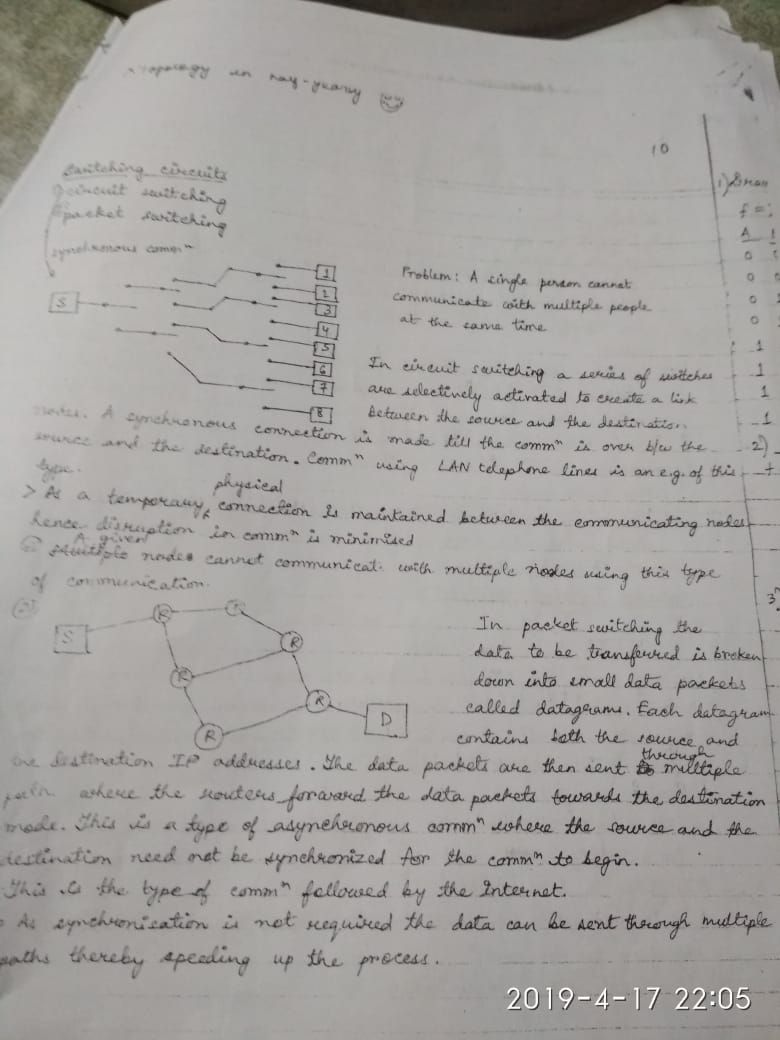 topology in
10
Switching circuits
1) circuit switching
2) packet switching
synchronous commⁿ
S
1
2
3
4
5
6
7
8
Problem: A single person cannot
communicate with multiple people
at the same time
In circuit switching a series of switches
are selectively activated to create a link
between the source and the destination
nodes. A synchronous connection is made till the commⁿ is over b/w the
source and the destination. Commⁿ using LAN telephone lines is an e.g. of this
type.
physical
> As a temporary connection is maintained between the communicating nodes
hence disruption in commⁿ is minimised
A given
Multiple nodes cannot communicat. with multiple nodes using this type
of communication.
S
R
R
R
R
R
D
In packet switching the
data to be transferred is broken
down into small data packets
called datagrams. Each datagram
contains both the source and
the destination IP addresses. The data packets are then sent through multiple
path where the routers forward the data packets towards the destination
node. This is a type of asynchronous commⁿ where the source and the
destination need not be synchronized for the commⁿ to begin.
This is the type of commⁿ followed by the Internet.
As synchronisation is not required the data can be sent through multiple
paths thereby speeding up the process.
1)
f =
A
0
0
0
0
1
1
1
1
2)
3)
2019-4-17 22:05